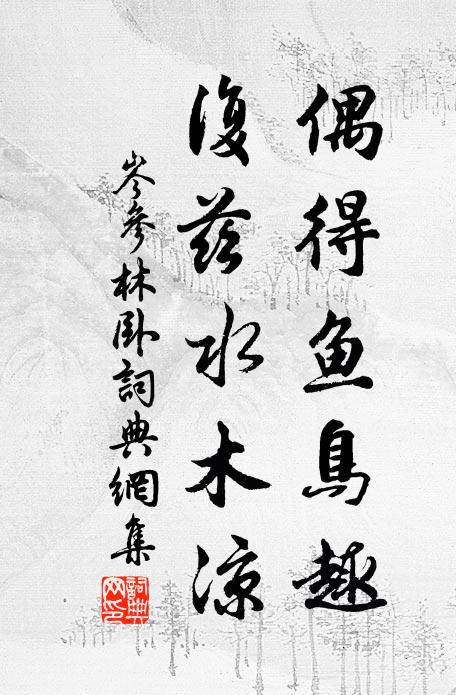 偶得鱼鳥趣
復茲水木涼
岑參林卧詞典網集
詞典网印